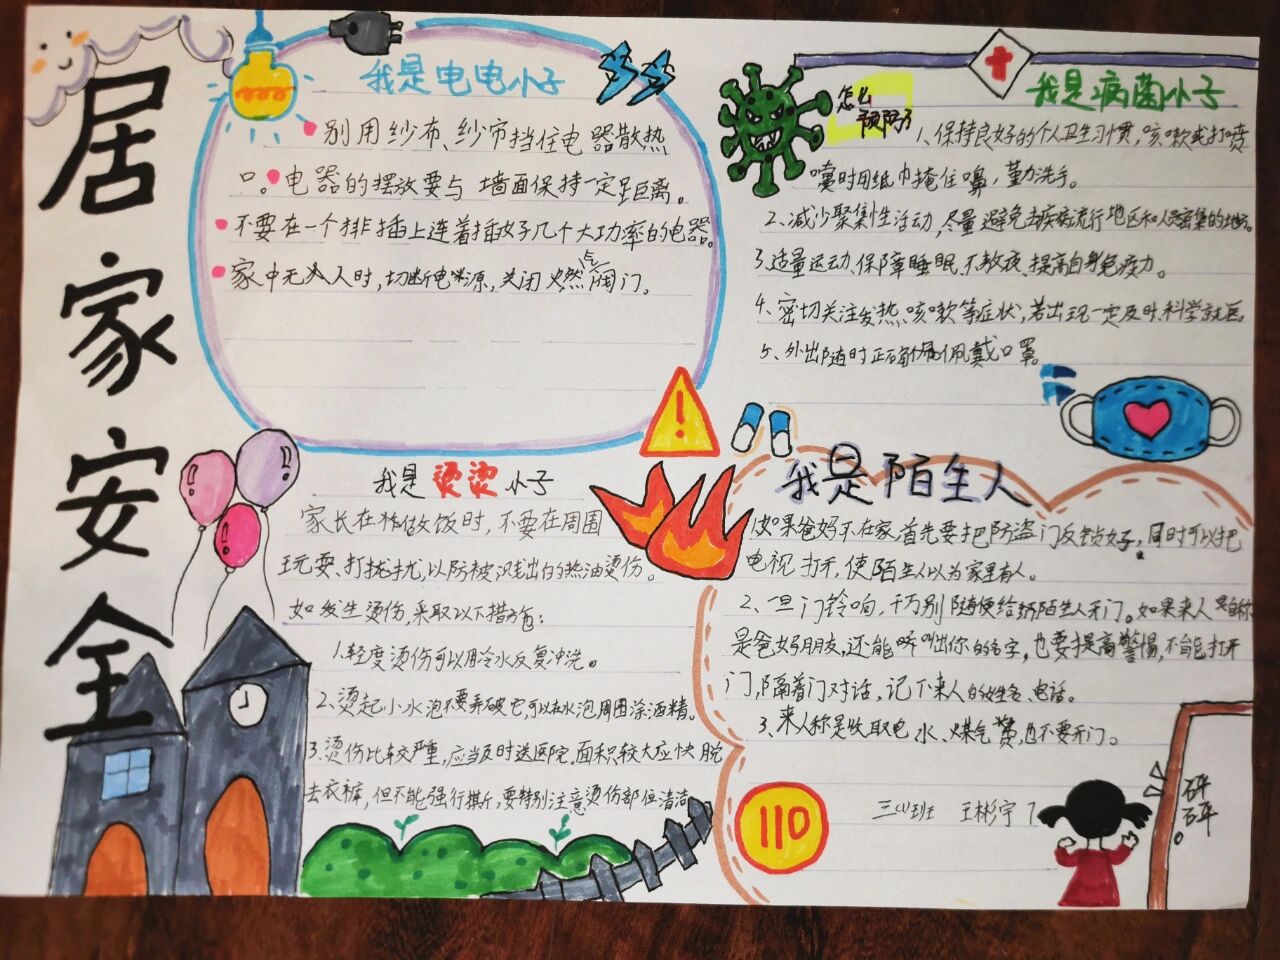 居家安全
我是电电小子
别用纱布、纱帘挡住电器散热
口。电器的摆放要与墙面保持一定距离。
不要在一个排插上连着插好几个大功率的电器。
家中无人时,切断电源,关闭燃气阀门。
怎么
预防?
我是病菌小子
1、保持良好的个人卫生习惯,咳嗽或打喷
嚏时用纸巾掩住口鼻,勤洗手。
2、减少聚集性活动,尽量避免去疾病流行地区和人员密集的地方。
3、适量运动、保障睡眠、不熬夜、提高自身免疫力。
4、密切关注发热、咳嗽等症状,若出现一定及时、科学就医。
5、外出随时正确佩戴口罩。
我是烫烫小子
家长在做饭时,不要在周围
玩耍、打扰,以防被溅出的热油烫伤。
如发生烫伤,采取以下措施:
1.轻度烫伤可以用冷水反复冲洗。
2、烫起小水泡不要弄破它,可以在水泡周围涂酒精。
3、烫伤比较严重,应当及时送医院。面积较大应快脱
去衣裤,但不能强行撕斤,要特别注意烫伤部位清洁
我是陌生人
1、如果爸妈不在家,首先要把防盗门反锁好,同时可以把
电视打开,使陌生人以为家里有人。
2、一旦门铃响,千万别随便给陌生人开门。如果来人自称
是爸妈朋友,还能叫出你的名字,也要提高警惕,不能打开
门,隔着门对话,记下来人的姓名、电话。
3、来人称是收取电、水、煤气费,也不要开门。
三(1)班 王彬宇
110
砰
砰。